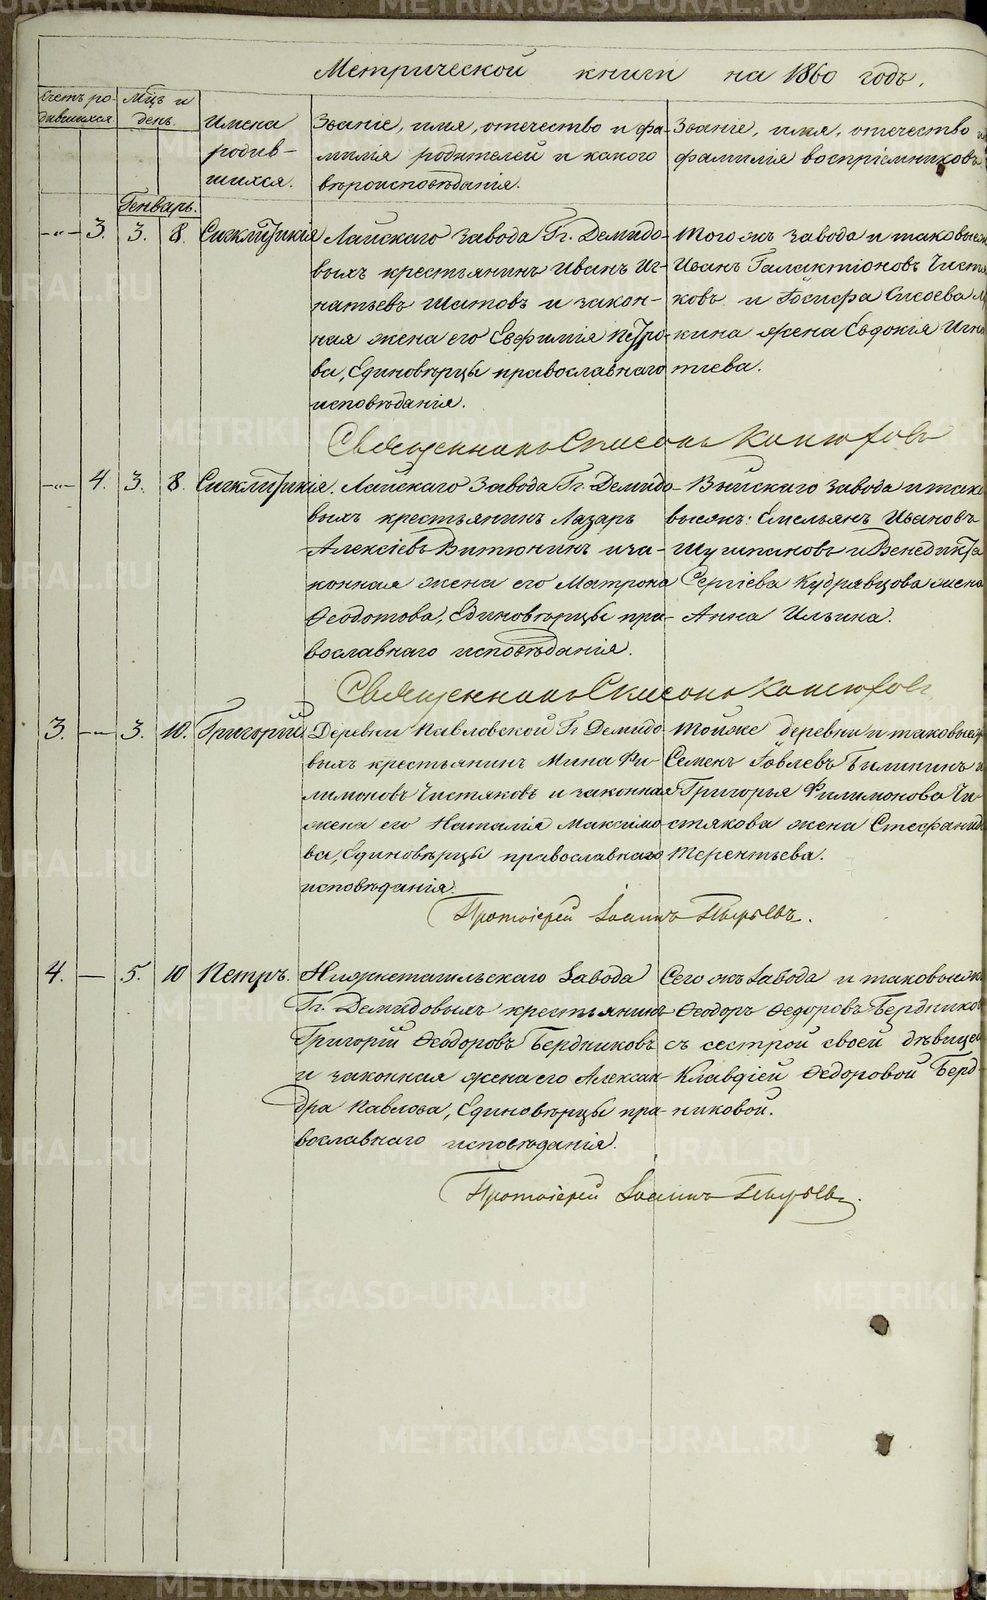 Метрической книги на 1860 годъ.
Счетъ ро-
дившихся
Мцъ и
день.
Имена
родив-
шихся.
Званіе, имя, отечество и фа-
милія родителей и какого
вѣроисповѣданія.
Званіе, имя, отечество и
фамилія воспріемниковъ
Генварь.
-"- 3. 3. 8. Сигклитикія
Лайскаго завода Гг. Демидо-
выхъ крестьянинъ Иванъ Иг-
натьевъ Шатовъ и закон-
ная жена его Евфимія Петро-
ва, Единовѣрцы православнаго
исповѣданія.
Того жъ завода и таковыеж
Иванъ Галактіоновъ Чистя
ковъ и Іосифа Сисоева
кина жена Евдокія Игна
тьева.
Священникъ Симеонъ
-"- 4. 3. 8. Сигклитикія.
Лайскаго завода Гг. Демидо-
выхъ крестьянинъ Лазарь
Алексіевъ Витюнинъ и за-
конная жена его Матрона
Ѳеодотова, Единовѣрцы пра-
вославнаго исповѣданія.
Выйскаго завода и тако
выежъ: Емельянъ Ивановъ
и Венедикта
Сергіева Кудрявцова жена
Анна Ильина.
Священникъ Симеонъ
3. - 3. 10. Григорій
Деревни Павловской Гг Демидо
выхъ крестьянинъ Мина Фи-
лимоновъ Чистяковъ и законная
жена его Наталія Максимо
ва, Единовѣрцы православнаго
исповѣданія.
Тойже деревни и таковыеж
Семенъ Іовлевъ и
Григорья Филимонова Чи-
стякова жена Стефанид
Терентьева.
Протоіерей Іоаннъ Пырьевъ.
4. - 5. 10 Петръ.
Нижнетагильскаго Завода
Гг. Демидовыхъ крестьянинъ
Григорій Ѳеодоровъ Бердниковъ
и законная жена его Алексан-
дра Павлова, Единовѣрцы пра-
вославнаго исповѣданія.
Сего жъ Завода и таковыеж
Ѳеодоръ Ѳедоровъ Бердников
съ сестрой своей дѣвицей
Клавдіей Ѳедоровой Берд-
никовой.
Протоіерей Іоаннъ Пырьевъ.
METRIKI.GASO-URAL.RU